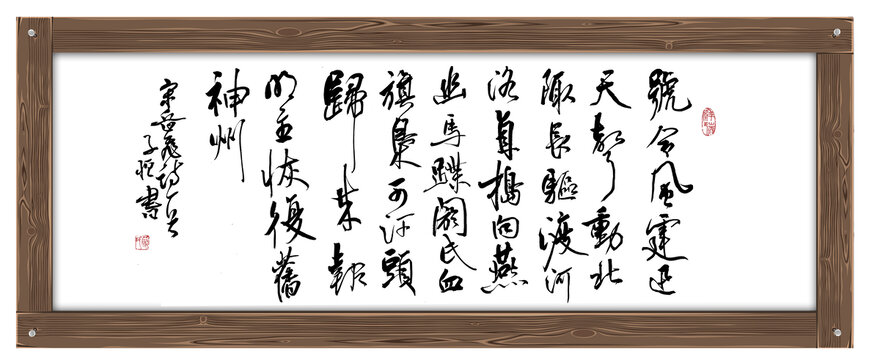 號令風霆迅
天聲動北
陬長驅渡河
洛直搗向燕
幽馬蹀閼氏血
旗梟可汗頭
歸來報
明主恢復舊
神州
宋岳飛詩一首
子恒書